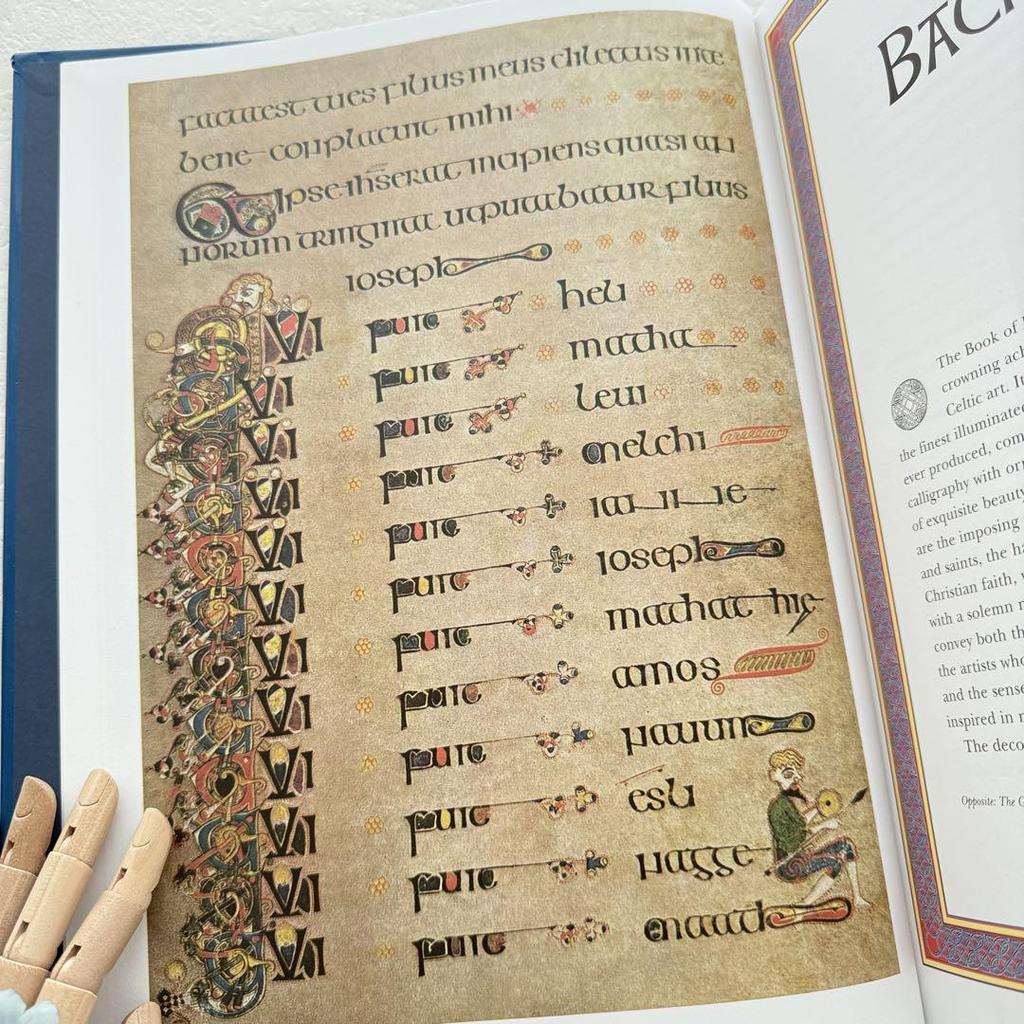 factaest tues filius meus dilectus inte
bene conplacuit mihi
Et ipse ihs erat incipiens quasi an
norum triginta ut putabatur filius
ioseph
QUI fuit heli
QUI fuit matha
QUI fuit leui
QUI fuit melchi
QUI fuit iannae
QUI fuit ioseph
QUI fuit mathathie
QUI fuit amos
QUI fuit nauum
QUI fuit esli
QUI fuit nagge
QUI fuit maath
BAC
The Book of
crowning
Celtic art.
the finest illuminated
ever produced,
calligraphy with
of exquisite beauty
are the imposing
and saints, the
Christian faith,
with a solemn
convey both
the artists who
and the sense
inspired in
The
Opposite: The